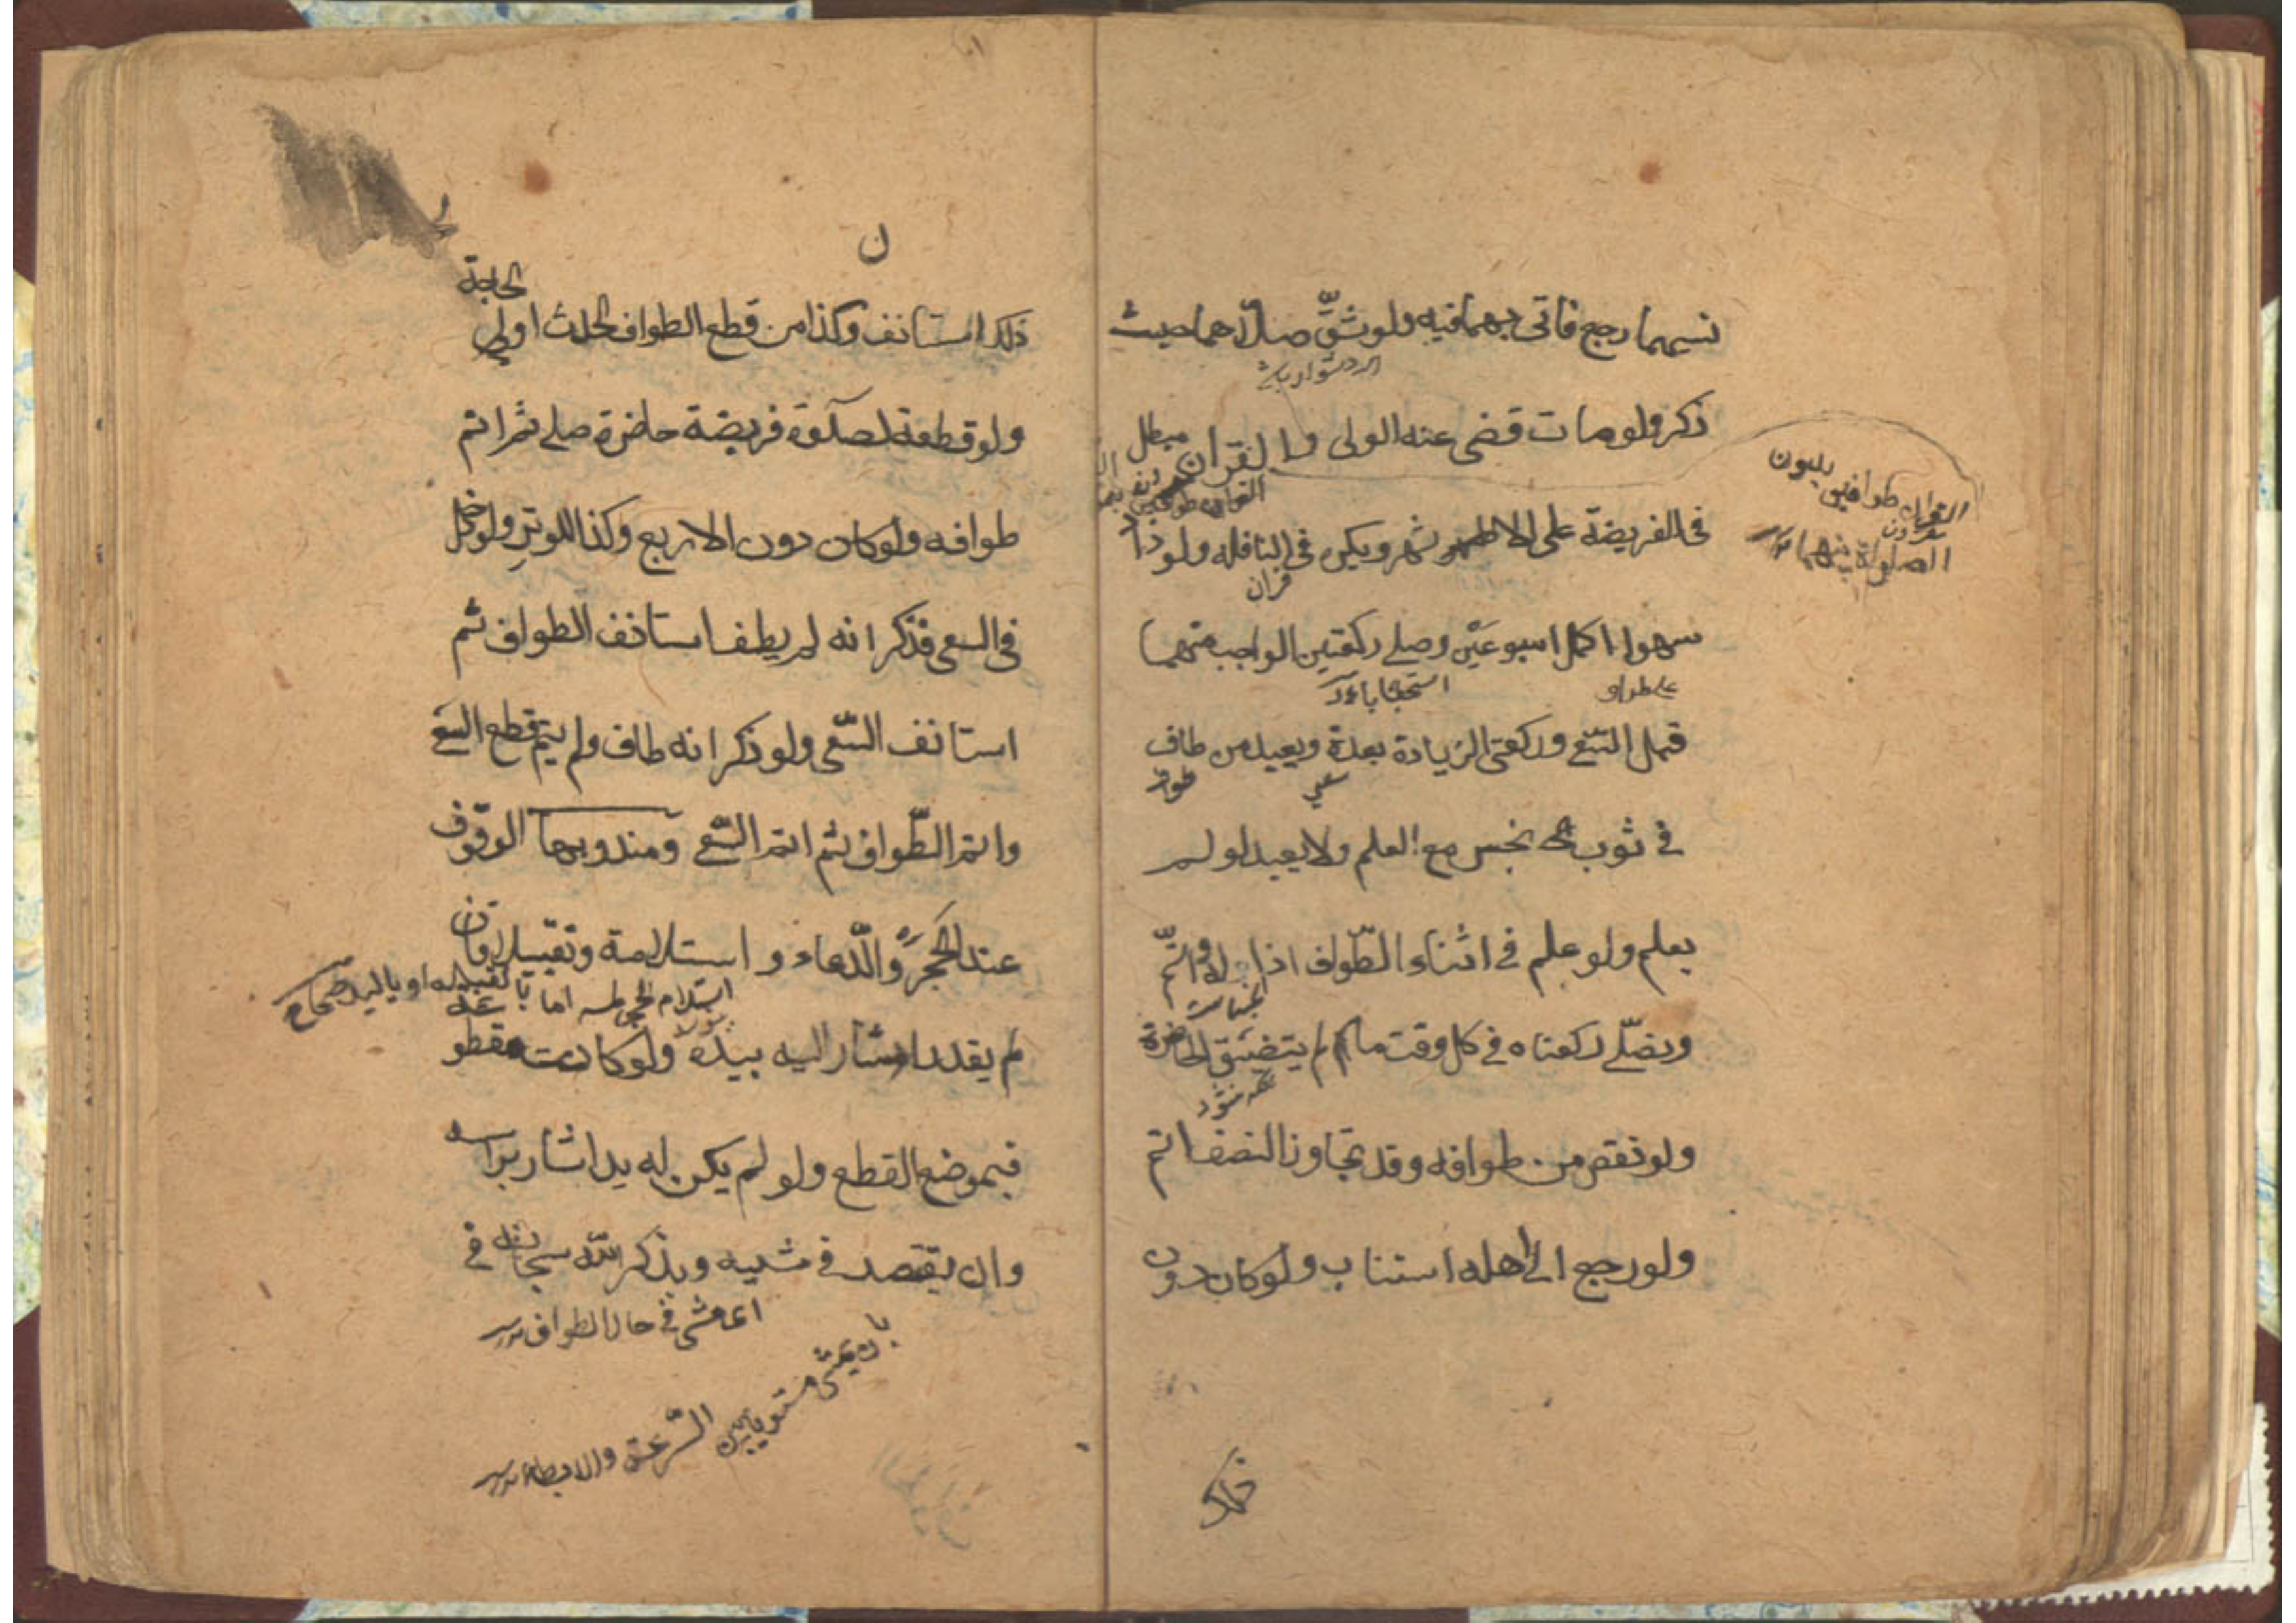 نسيهما رجع فاتى بهما فيه ولو شقّ صلّاهما حيث
ذكر ولو مات قضى عنه الولى والقران مبطل
فى الفريضة على الاظهر ويكره فى النافله ولو زاد
قران
سهوا اكمل اسبوعين وصلى ركعتين الواجب منهما
قبل السّعى وركعتى الزيادة بعدة ويعيد من طاف
فى ثوب نجس مع العلم ولا يعيد لو لم
يعلم ولو علم فى اثناء الطّواف ازاله واتمّ
نجاست
ويصلّى ركعتاه فى كل وقت مالم يتضيّق الحاضرة
ولو نقص من طوافه وقد تجاوز النصف اتم
ولو رجع الى اهله استناب ولو كان دون
ذلك
ن
ذلك استانف وكذا من قطع الطواف لحدث او لحاجة
ولو قطعه لصلوة فريضة حاضرة صلى ثم اتم
طوافه ولو كان دون الاربع وكذا للوتر ولو دخل
فى السعى فذكر انه لم يطف استانف الطواف ثم
استانف السّعى ولو ذكر انه طاف ولم يتم قطع السّعى
واتم الطّواف ثم اتم السّعى ومندوبها الوقوف
عند الحَجَر والدّعاء و استلامه وتقبيله فان
استلام الحجر لمسه اما بتقبيله او باليد
لم يقدر اشار اليه بيده ولو كانت مقطوعة
فبموضع القطع ولو لم يكن له يد اشار براسه
وان يقتصد فى مشيه ويذكر اللّه سبحانه فى
اى مشى فى حال الطواف
بان يمشى مستويا بين السّرعة والابطاء